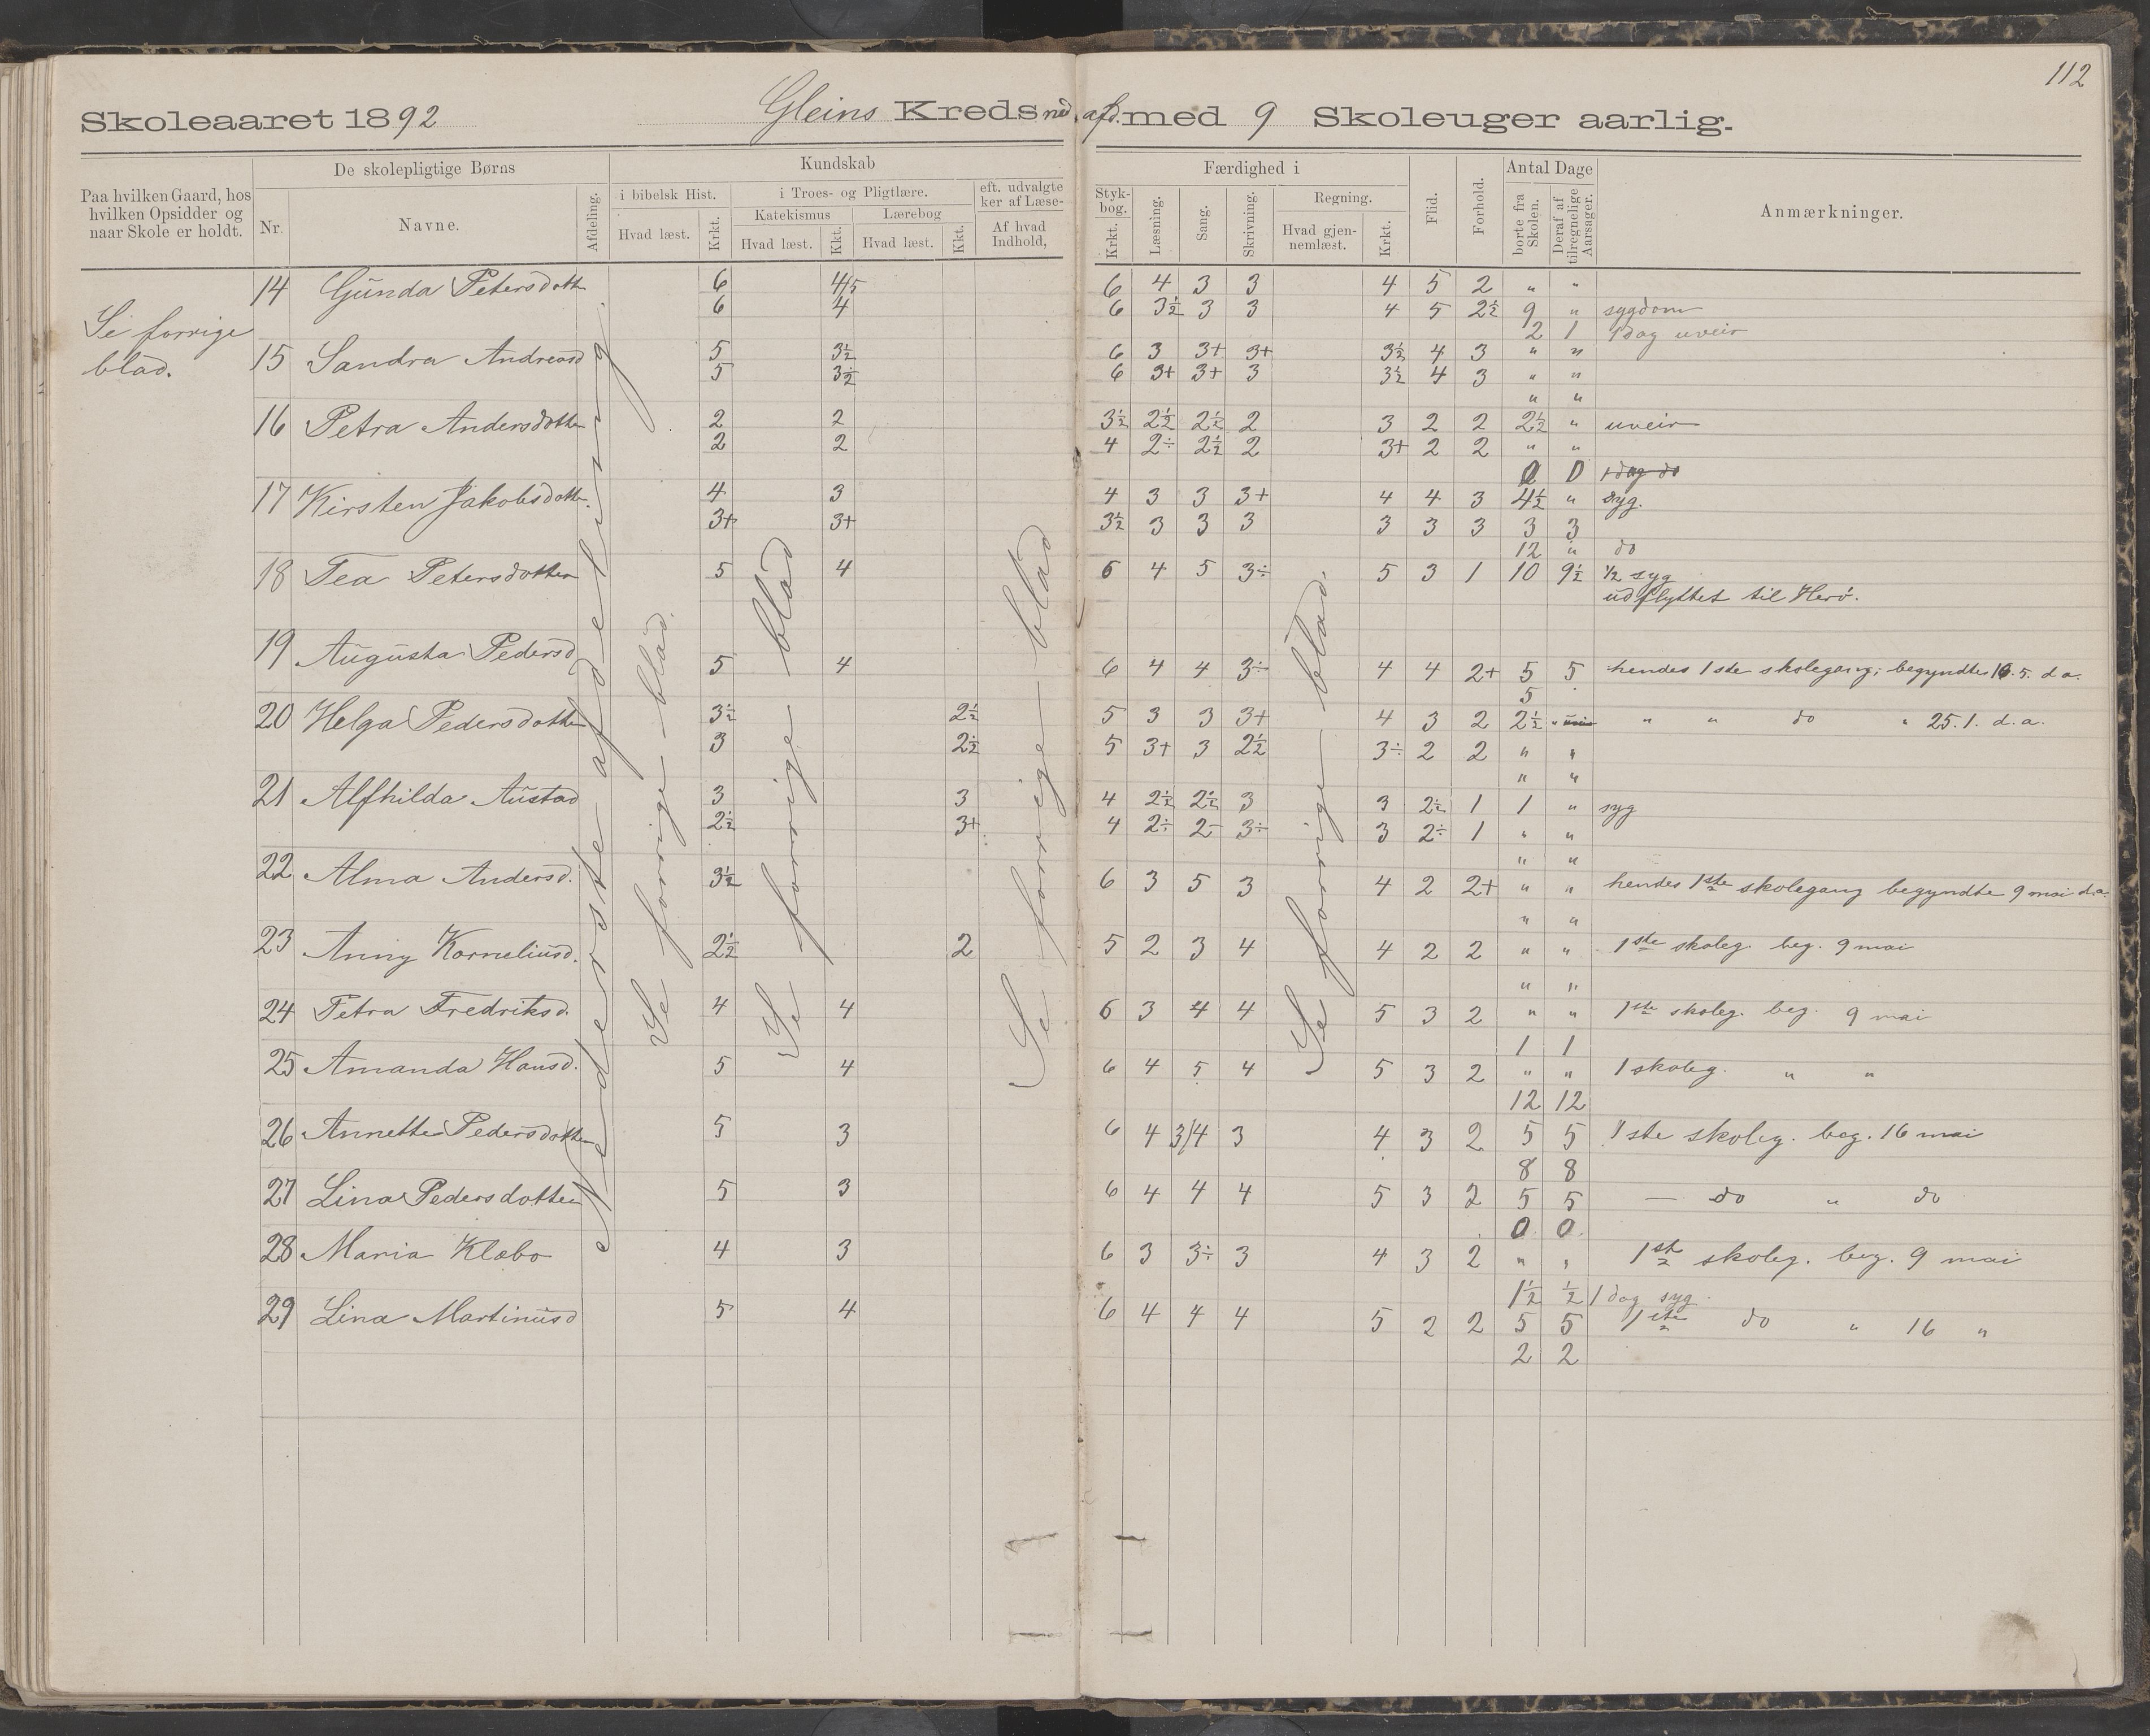 112
Skoleaaret 1892 Gleins Kreds ned. afd. med 9 Skoleuger aarlig.
Paa hvilken Gaard, hos hvilken Opsidder og naar Skole er holdt.
De skolepligtige Børns
Nr. Navne. Afdeling.
Kundskab
i bibelsk Hist. i Troes- og Pligtlære. eft. udvalgte Styk-
ker af Læse- bog.
Katekismus Lærebog
Hvad læst. Krkt. Hvad læst. Kkt. Hvad læst. Kkt. Af hvad Indhold, Krkt.
Færdighed i
Læsning. Sang. Skrivning. Regning.
Hvad gjen-nemlæst. Krkt.
Flid. Forhold.
Antal Dage
borte fra Skolen. Deraf af tilregnelige Aarsager.
Anmærkninger.
Se forrige
blad.
Nederste afdeling.
Se forrige blad.
Se forrige blad
Se forrige blad
Se forrige blad.
14 Gunda Petersdottr 6 4/5 6 4 3 3 4 5 2 " "
6 4 6 3½ 3 3 4 5 2½ 9 " sygdom
2 1 1 dag uveir
15 Sandra Andreasd 5 3½ 6 3 3+ 3+ 3½ 4 3 " "
5 3½ 6 3+ 3+ 3 3½ 4 3 " "
" "
16 Petra Andersdotter 2 2 3½ 2½ 2½ 2 3 2 2 2½ " uveir
2 2 4 2÷ 2½ 2 3+ 2 2 " "
0 0 1 dag do
17 Kirsten Jakobsdottr. 4 3 4 3 3 3+ 4 4 3 4½ " syg.
3+ 3+ 3½ 3 3 3 3 3 3 3 3
12 " do
18 Tea Petersdotter 5 4 6 4 5 3÷ 5 3 1 10 9½ ½ syg
udflyttet til Herø.
19 Augusta Pedersd
5 4 6 4 4 3÷ 4 4 2+ 5 5 hendes 1ste skolegang; begyndte 16.5. d a.
5
20 Helga Pedersdotter 3½ 2½ 5 3 3 3+ 4 3 2 2½ " " " do " 25.1. d.a.
3 2½ 5 3+ 3 2½ 3÷ 2 2 " "
" "
21 Alfhilda Austad 3 3 4 2½ 2½ 3 3 2½ 1 1 " syg
2½ 3+ 4 2÷ 2- 3÷ 3 2÷ 1 " "
" "
22 Alma Andersd. 3½ 6 3 5 3 4 2 2+ " " hendes 1ste skolegang begyndte 9 mai d.a.
" "
23 Anny Korneliusd. 2½ 2 5 2 3 4 4 2 2 " " 1ste skoleg. beg. 9 mai
" "
24 Petra Fredriksd. 4 4 6 3 4 4 5 3 2 " " 1ste skoleg. beg. 9 mai
1 1
25 Amanda Hansd. 5 4 6 4 5 4 5 3 2 " " 1 skoleg. " "
12 12
26 Annette Pedersdotter 5 3 6 4 3/4 3 4 3 2 5 5 1ste skoleg. beg. 16 mai
8 8
27 Lina Pedersdotter 5 3 6 4 4 4 5 3 2 5 5 — do " do
0 0
28 Maria Klæbo 4 3 6 3 3÷ 3 4 3 2 " " 1ste skoleg. beg. 9 mai
1½ ½ 1 dag syg.
29 Lina Martinusd 5 4 6 4 4 4 5 2 2 5 5 1ste do " 16 "
2 2